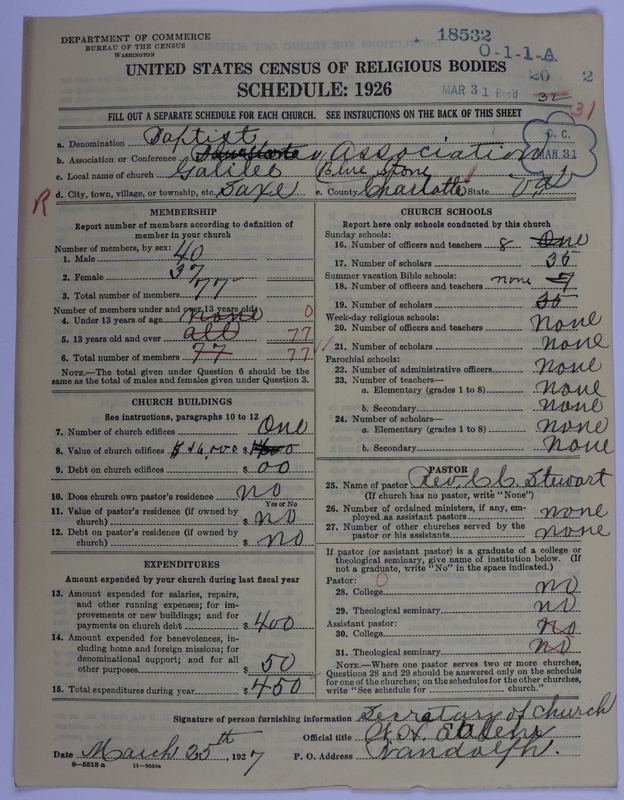 DEPARTMENT OF COMMERCE
BUREAU OF THE CENSUS
WASHINGTON
18532
0-1-1-A
20 2
MAR 31 Rec'd
32
31
UNITED STATES CENSUS OF RELIGIOUS BODIES
SCHEDULE: 1926
FILL OUT A SEPARATE SCHEDULE FOR EACH CHURCH. SEE INSTRUCTIONS ON THE BACK OF THIS SHEET
a. Denomination Baptist
S. C. MAR 31
b. Association or Conference Association
c. Local name of church Galileo Blue Stone
d. City, town, village, or township, etc. Saxe e. County Charlotte State Va
R
MEMBERSHIP
Report number of members according to definition of
member in your church
Number of members, by sex:
1. Male 40
2. Female 37
3. Total number of members 77
Number of members under and over 13 years old:
4. Under 13 years of age none 0
5. 13 years old and over all 77
6. Total number of members 77 77
NOTE.—The total given under Question 6 should be the
same as the total of males and females given under Question 3.
CHURCH BUILDINGS
See instructions, paragraphs 10 to 12
7. Number of church edifices One
8. Value of church edifices $16,000 $
9. Debt on church edifices $ 00
10. Does church own pastor's residence no
Yes or No
11. Value of pastor's residence (if owned by
church) $ no
12. Debt on pastor's residence (if owned by
church) $ no
EXPENDITURES
Amount expended by your church during last fiscal year
13. Amount expended for salaries, repairs,
and other running expenses; for im-
provements or new buildings; and for
payments on church debt $ 400
14. Amount expended for benevolences, in-
cluding home and foreign missions; for
denominational support; and for all
other purposes $ 50
15. Total expenditures during year $ 450
CHURCH SCHOOLS
Report here only schools conducted by this church
Sunday schools:
16. Number of officers and teachers 8 One
17. Number of scholars 35
Summer vacation Bible schools:
18. Number of officers and teachers none 7
19. Number of scholars 35
Week-day religious schools:
20. Number of officers and teachers None
21. Number of scholars None
Parochial schools:
22. Number of administrative officers None
23. Number of teachers—
a. Elementary (grades 1 to 8) None
b. Secondary None
24. Number of scholars—
a. Elementary (grades 1 to 8) None
b. Secondary None
PASTOR
25. Name of pastor Rev. C. C. Stewart
(If church has no pastor, write "None")
26. Number of ordained ministers, if any, em-
ployed as assistant pastors none
27. Number of other churches served by the
pastor or his assistants none
If pastor (or assistant pastor) is a graduate of a college or
theological seminary, give name of institution below. (If
not a graduate, write "No" in the space indicated.)
Pastor: 0
28. College no
29. Theological seminary no
Assistant pastor:
30. College no
31. Theological seminary no
NOTE.—Where one pastor serves two or more churches,
Questions 28 and 29 should be answered only on the schedule
for one of the churches; on the schedules for the other churches,
write "See schedule for church."
Signature of person furnishing information Secretary of church
Official title
Date March 25th, 1927 P. O. Address Randolph.
8-5518 a 11-9554a